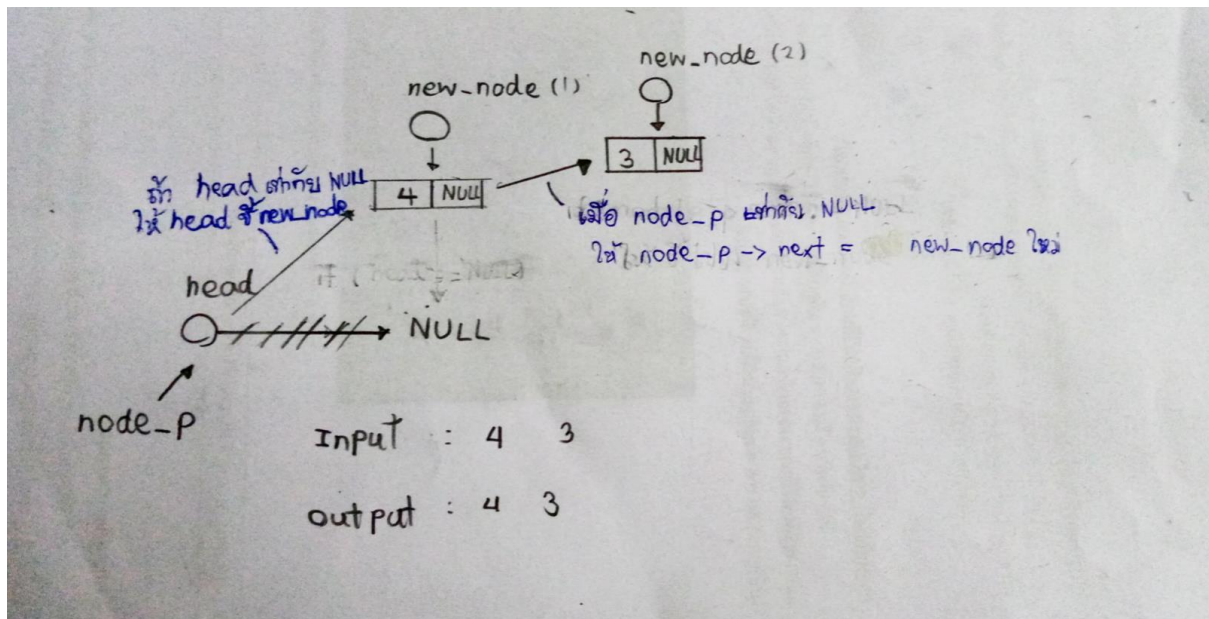 new_node (2)
new_node (1)
3 NULL
4 NULL
ถ้า head เท่ากับ NULL
ให้ head ชี้ new_node
เมื่อ node_p เท่ากับ NULL
ให้ node_p -> next = new_node ใหม่
head
NULL
node_p
Input : 4 3
output : 4 3